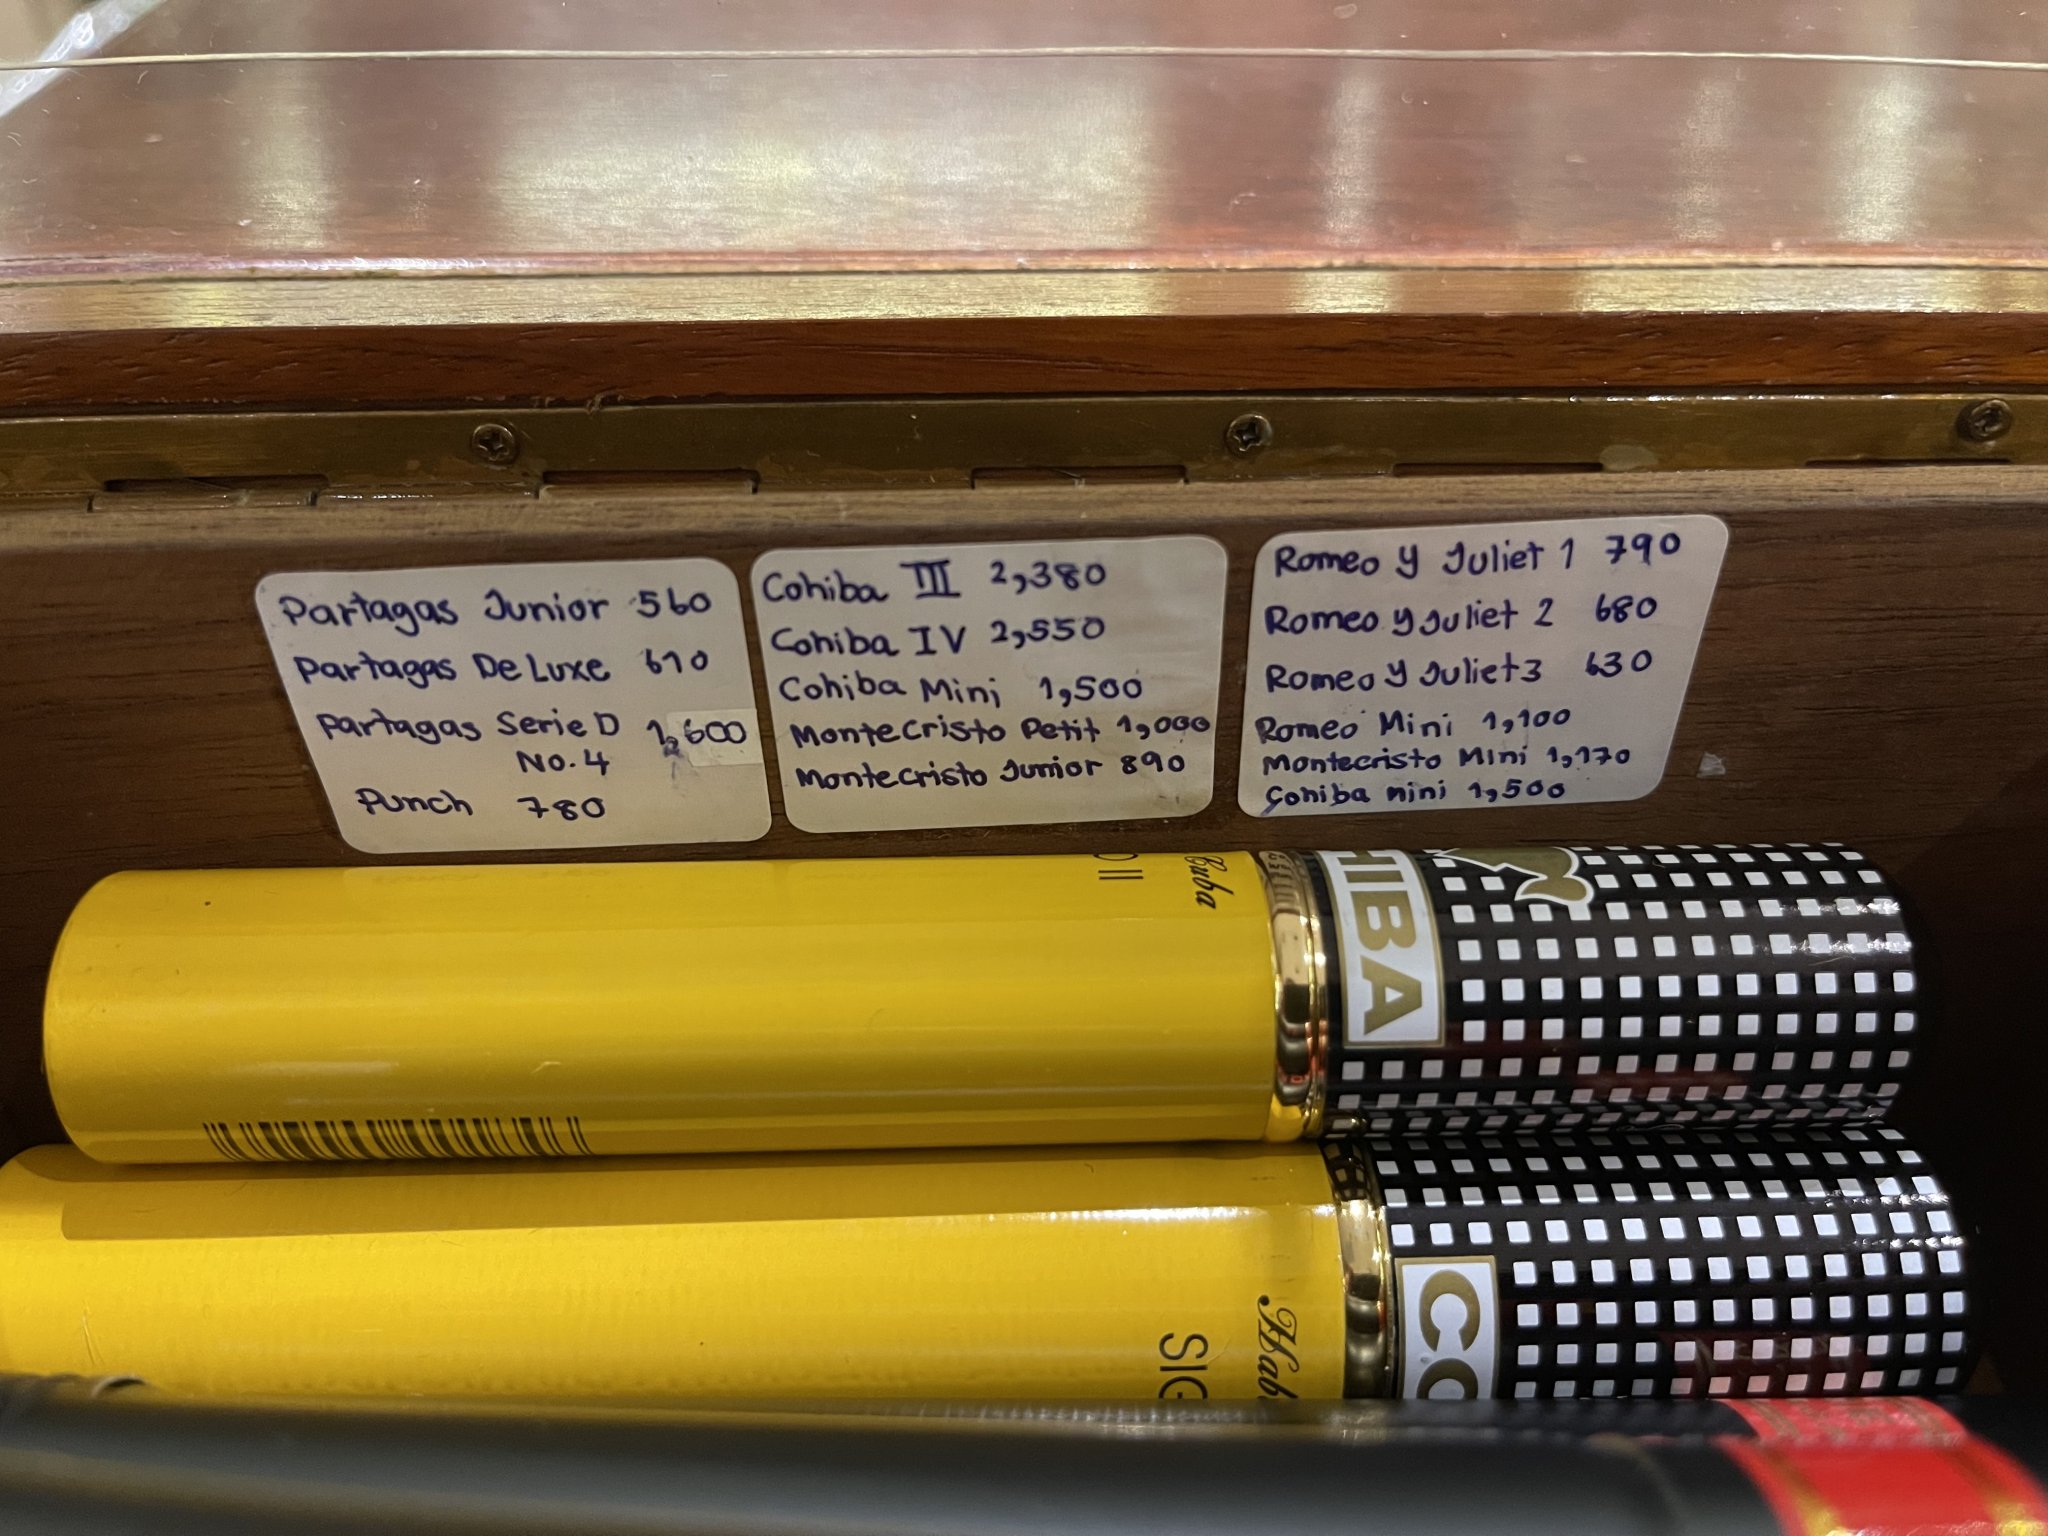 Partagas Junior 560
Partagas DeLuxe 610
Partagas Serie D 1,600
No.4
Punch 780
Cohiba III 2,380
Cohiba IV 2,550
Cohiba Mini 1,500
Montecristo Petit 1,000
Montecristo Junior 890
Romeo y Juliet 1 790
Romeo y Juliet 2 680
Romeo y Juliet 3 630
Romeo Mini 1,100
Montecristo Mini 1,170
Cohiba mini 1,500
O II
Cuba
HIBA
SIG
Hab
CO